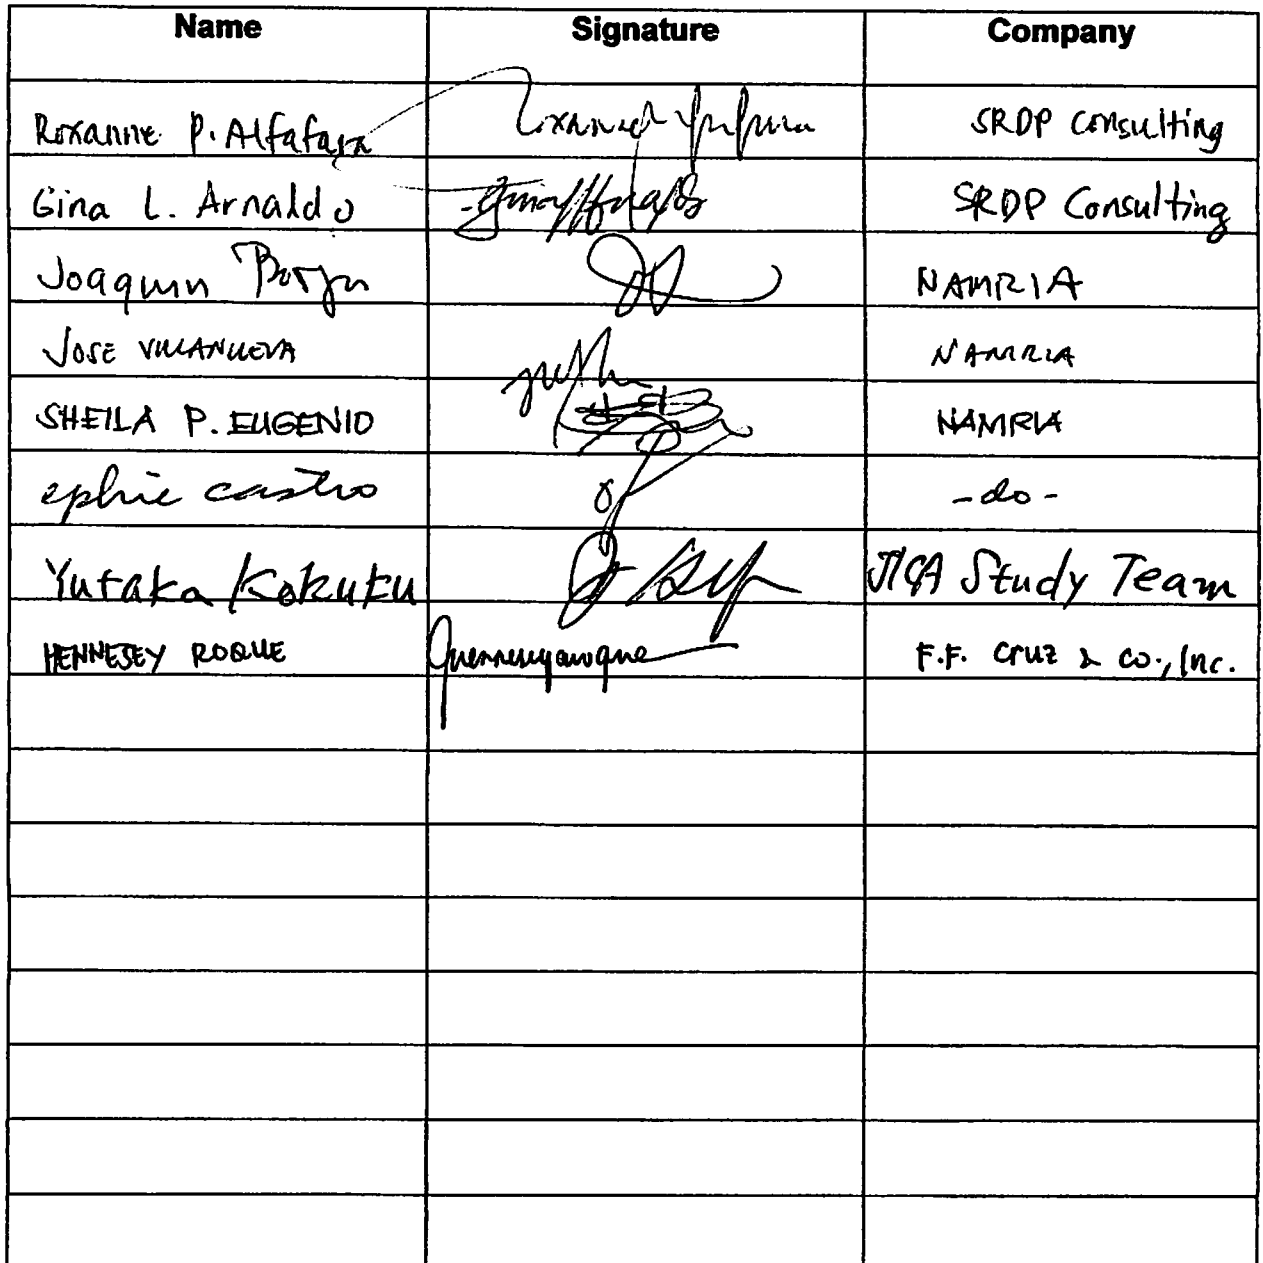 Name Signature Company
Roxanne P. Alfafara SRDP Consulting
Gina L. Arnaldo SRDP Consulting
Joaquin Borja NAMRIA
JOSE VILLANUEVA NAMRIA
SHEILA P. EUGENIO NAMRIA
ephie castro -do-
Yutaka Kokubu JICA Study Team
HENNESEY ROQUE F.F. Cruz & co., Inc.